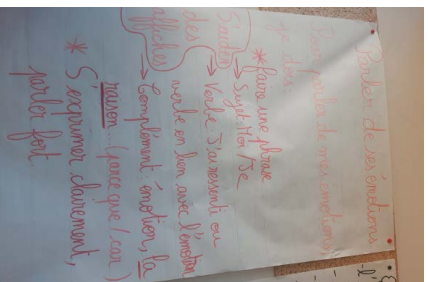 Parler de ses émotions
Pour parler de mes émotions,
je dois
* faire une phrase
→ Sujet Moi / Je
→ Verbe J'ai ressenti ou
verbe en lien avec l'émotion
→ Complément: émotion, la
raison (parce que / car)
* S'exprimer clairement,
parler fort.
S'aider
des
affiches